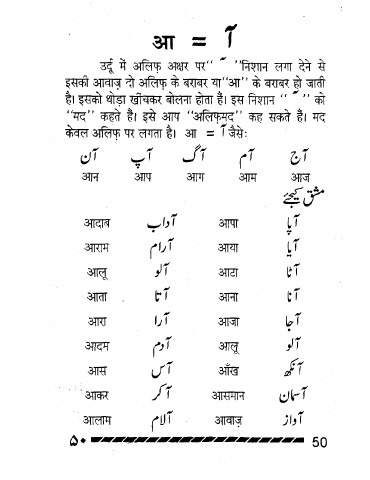 आ = آ
उर्दू में अलिफ़ अक्षर पर "آ" निशान लगा देने से
इसकी आवाज़ दो अलिफ़ के बराबर या "आ" के बराबर हो जाती
है। इसको थोड़ा खींचकर बोलना होता है। इस निशान "آ" को
"मद" कहते हैं। इसे आप "अलिफ़मद" कह सकते हैं। मद
केवल अलिफ़ पर लगता है। आ = آ जैसेः
آج آم آگ آپ آن
आन आप आग आम आज
مشق کیجئے
आदाब آداب आपा آپا
आराम آرام आया آیا
आलू آلو आटा آٹا
आता آتا आना آنا
आरा آرا आजा آجا
आदम آدم आलू آلو
आस آس आँख آنکھ
आकर آکر आसमान آسمان
आलाम آلام आवाज़ آواز
۵۰ 50